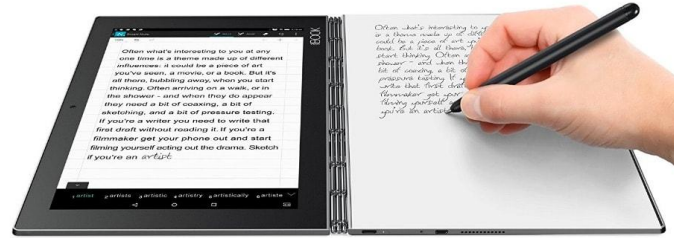 Often what's interesting to you at any
one time is a theme made up of different
influences: it could be a piece of art
you've seen, a movie, or a book. But it's
all there, bubbling away, when you start
thinking. Often arriving on a walk, or in
the shower - and when they do appear
they need a bit of coaxing, a bit of
sketching, and a bit of pressure testing.
If you're a writer you need to write that
first draft without reading it. If you're a
filmmaker get your phone out and start
filming yourself acting out the drama. Sketch
if you're an artist
artist artists artistic artistry artistically artiste
Often what's interesting to yo
is a theme made up of diff
could be a piece of art yo
But it's all there,
start thinking. Often
shower - and when the
bit of coaxing, a bit of
pressure testing. If you
write that first draf
filmmaker get your
filming yourself
you're an artist